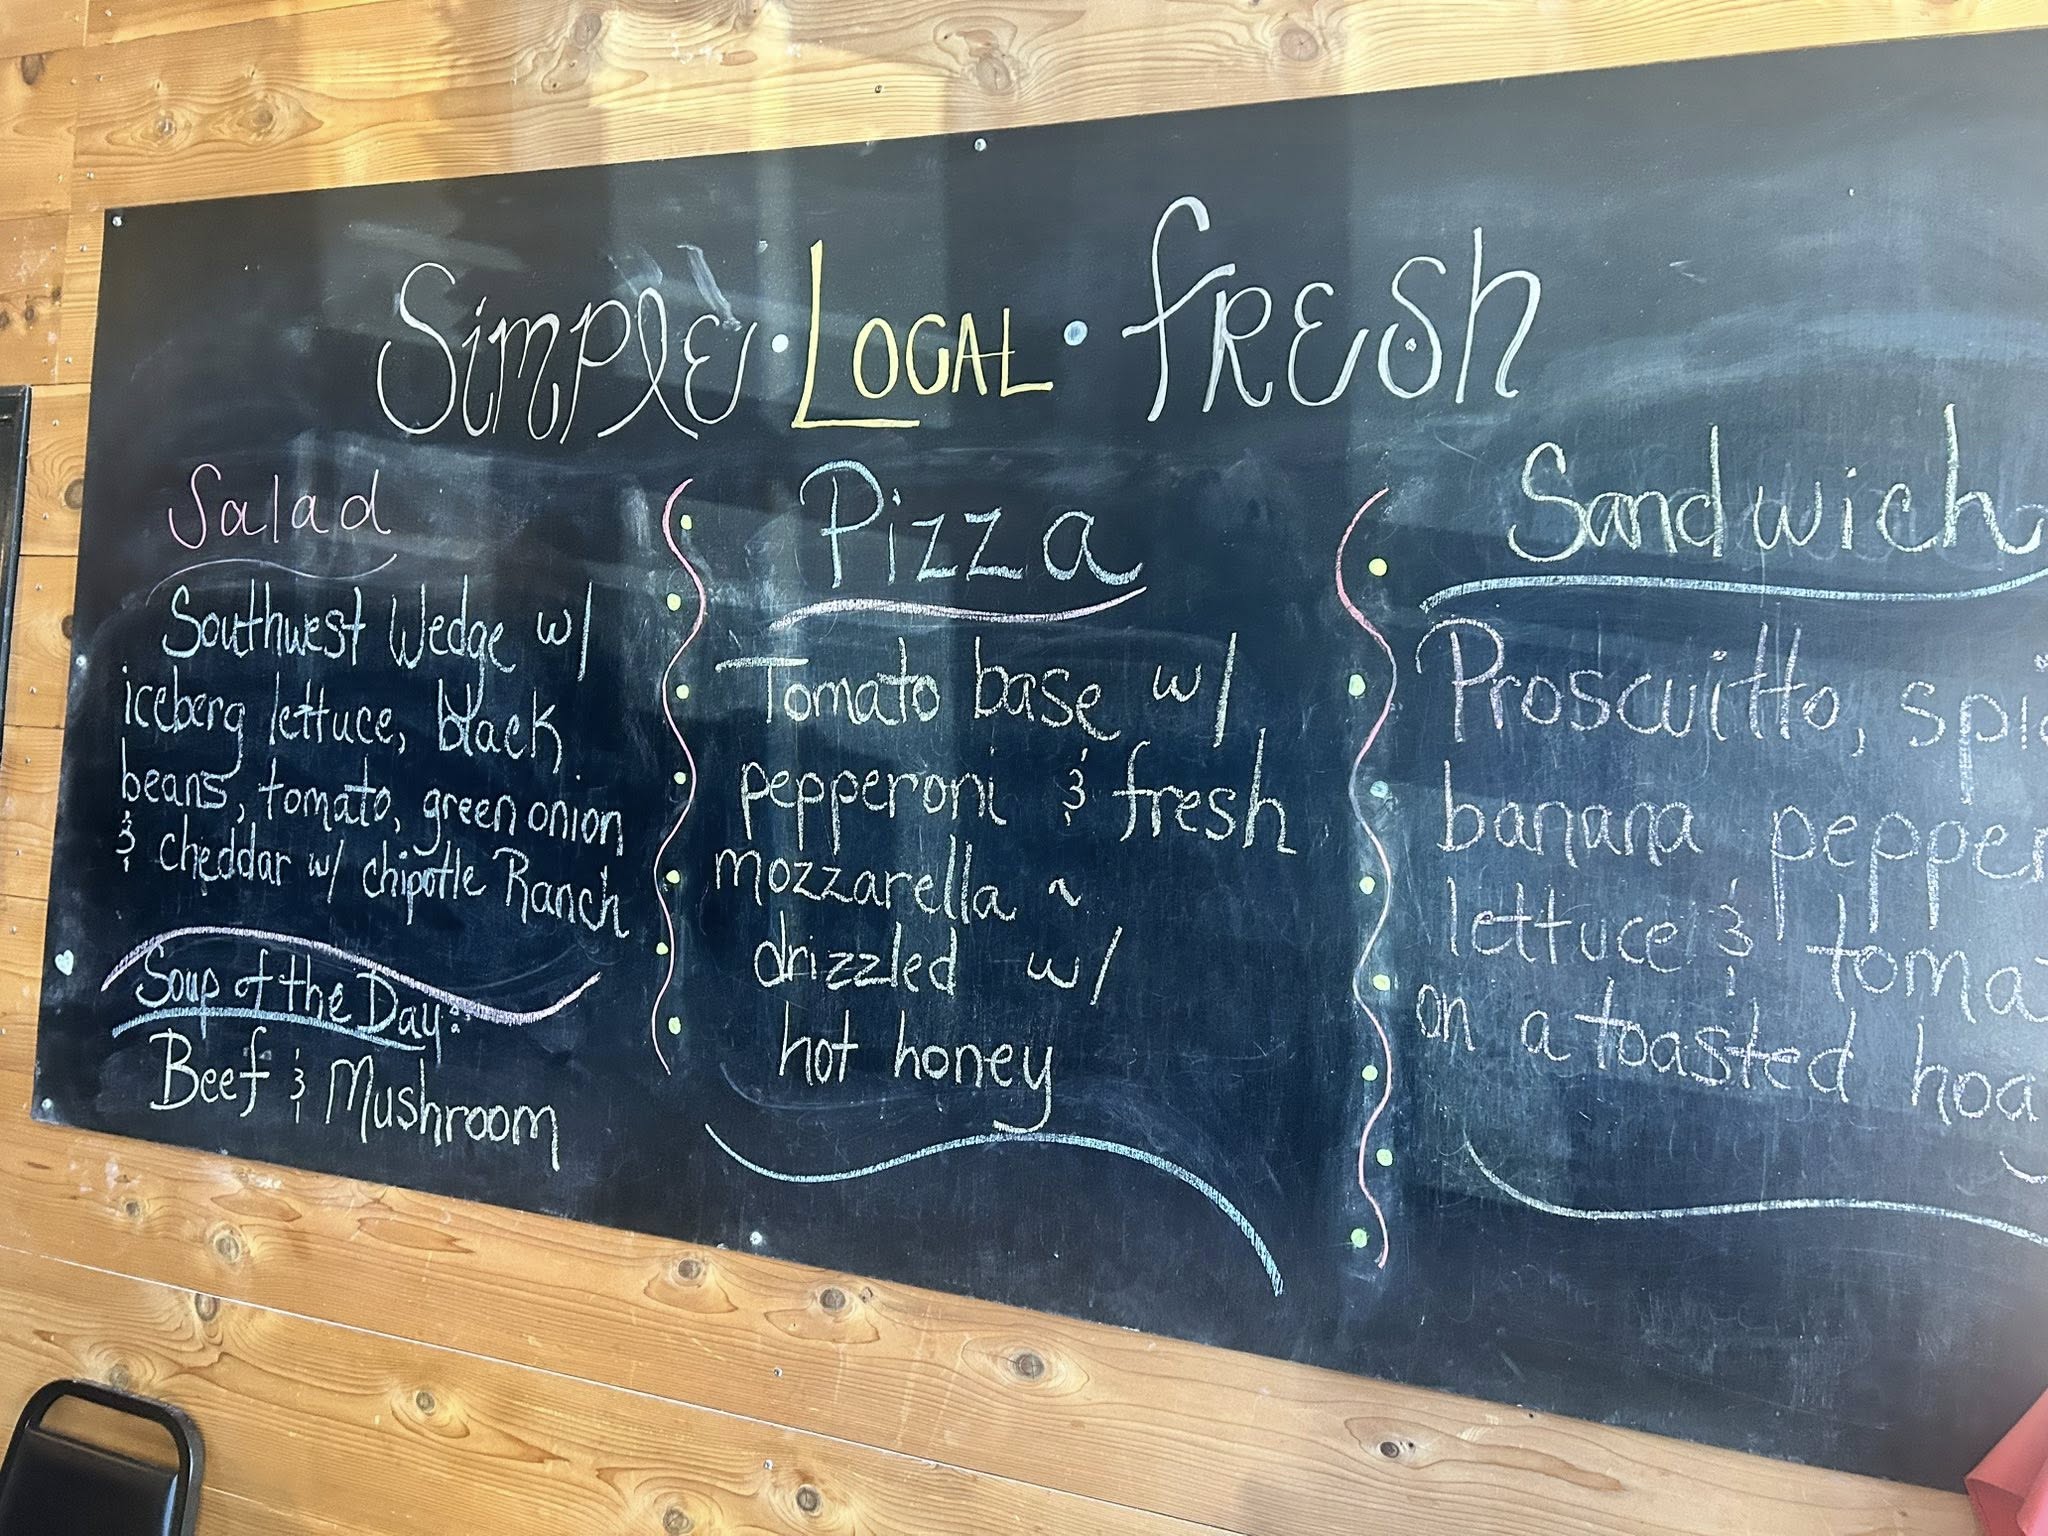 Simple · Local · Fresh
Salad
Southwest Wedge w/
iceberg lettuce, black
beans, tomato, green onion
& cheddar w/ chipotle Ranch
Soup of the Day:
Beef & Mushroom
Pizza
Tomato base w/
pepperoni & fresh
mozzarella ~
drizzled w/
hot honey
Sandwich
Proscuitto,
banana
lettuce &
on a toasted